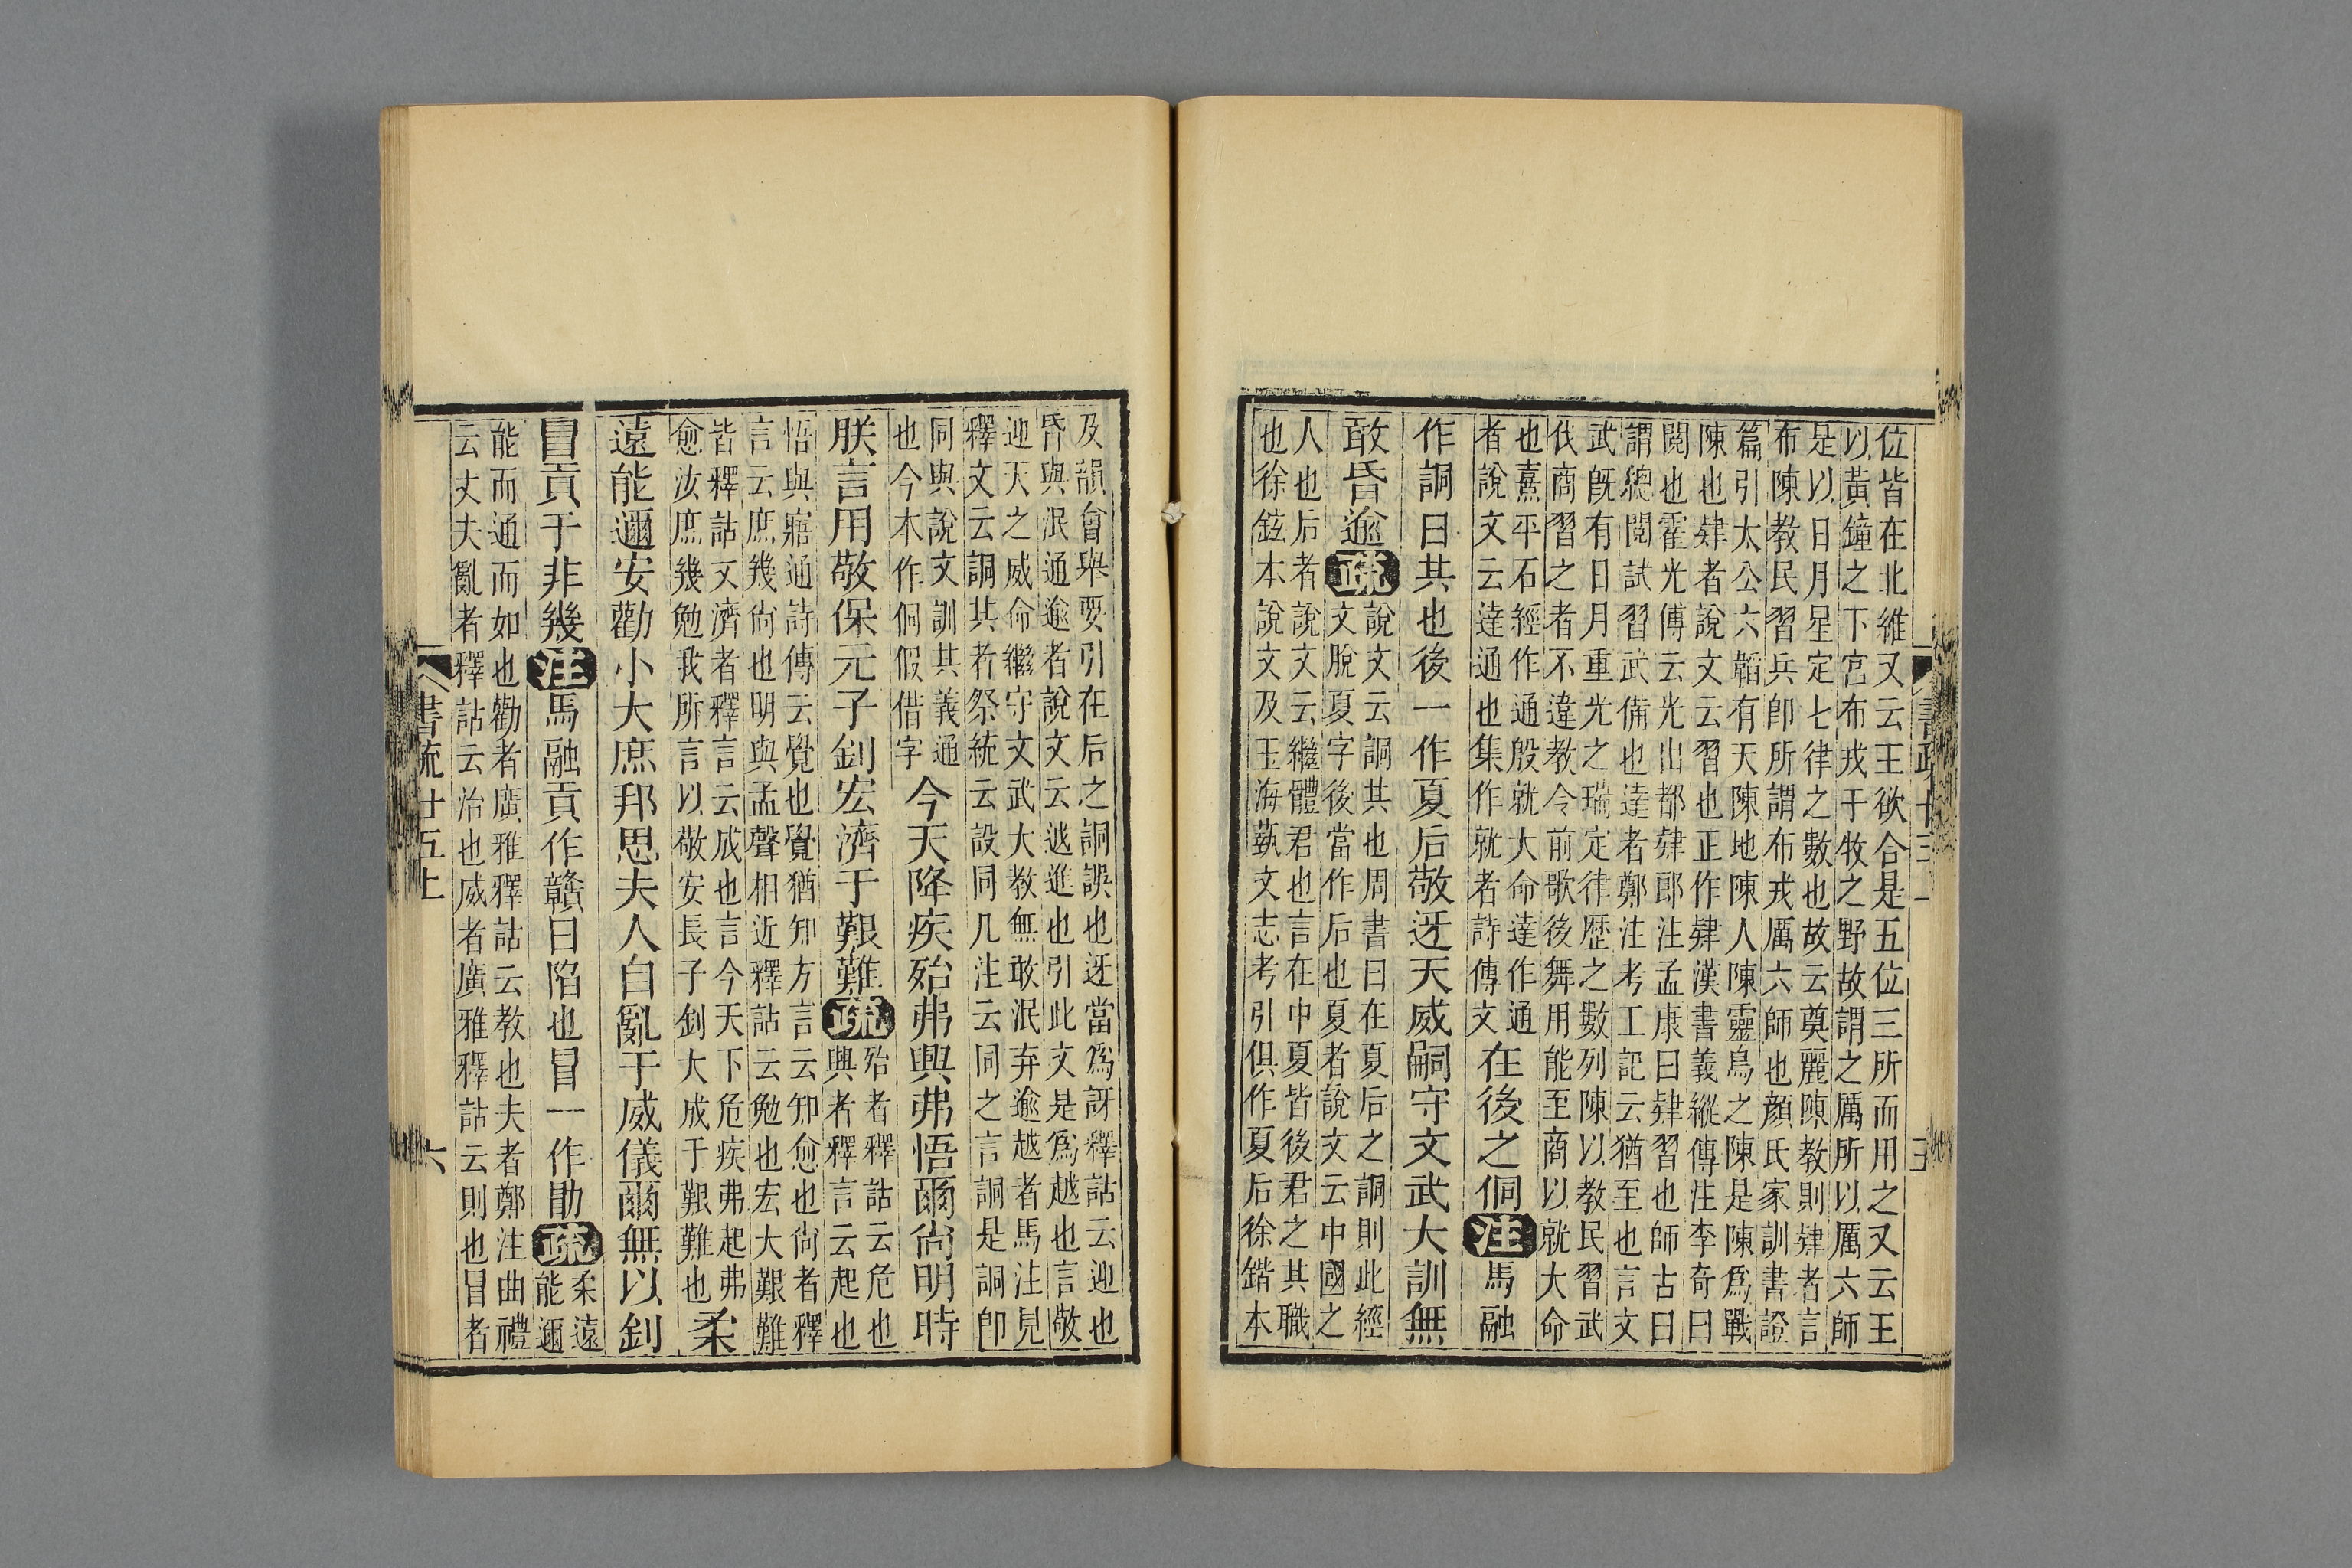 位皆在北維又云王欲合是五位三所而用之又云王
以黃鐘之下宮布戎于牧之野故謂之厲所以厲六師
是以日月星定七律之數也故云奠麗陳教則肄者言
布陳教民習兵卽所謂布戎厲六師也顏氏家訓書證
篇引太公六韜有天陳地陳人陳雲鳥之陳是陳爲戰
陳也肄者說文云習也正作肄漢書義縱傳注李奇曰
閱也霍光傳云光出都肄郎注孟康曰肄習也師古曰
謂總閱試習武備也達者鄭注考工記云猶至也言文
武旣有日月重光之瑞定律歷之數列陳以教民習武
伐商習之者不違教令前歌後舞用能至商以就大命
也熹平石經作通殷就大命達作通
者說文云達通也集作就者詩傳文
在後之侗
注
馬融
作詷曰共也後一作夏后敬迓天威嗣守文武大訓無
敢昏逾
疏
說文云詷共也周書曰在夏后之詷則此經
文脫夏字後當作后也夏者說文云中國之
人也后者說文云繼體君也言在中夏皆後君之其職
也徐鉉本說文及玉海藝文志考引俱作夏后徐鍇本
書疏廿五上
五
及韻會舉要引在后之詷誤也迓當爲訝釋詁云迎也
昏與泯通逾者說文云逑進也引此文是爲越也言敬
迎天之威命繼守文武大教無敢泯弃逾越者馬注見
釋文云詷共者祭統云設同几注云同之言詷是詷卽
同與說文訓共義通
也今本作侗假借字
今天降疾殆弗興弗悟爾尙明時
朕言用敬保元子釗宏濟于艱難
疏
殆者釋詁云危也
興者釋言云起也
悟與寤通詩傳云覺也覺猶知方言云知愈也尙者釋
言云庶幾尙也明與孟聲相近釋詁云勉也宏大艱難
皆釋詁文濟者釋言云成也言今天下危疾弗起弗
愈汝庶幾勉我所言以敬安長子釗大成于艱難也
柔
遠能邇安勸小大庶邦思夫人自亂于威儀爾無以釗
冒貢于非幾
注
馬融貢作贛曰陷也冒一作勖
疏
柔遠
能邇
能而通而如也勸者廣雅釋詁云教也夫者鄭注曲禮
云丈夫亂者釋詁云治也威者廣雅釋詁云則也冒者
書疏廿五上
六